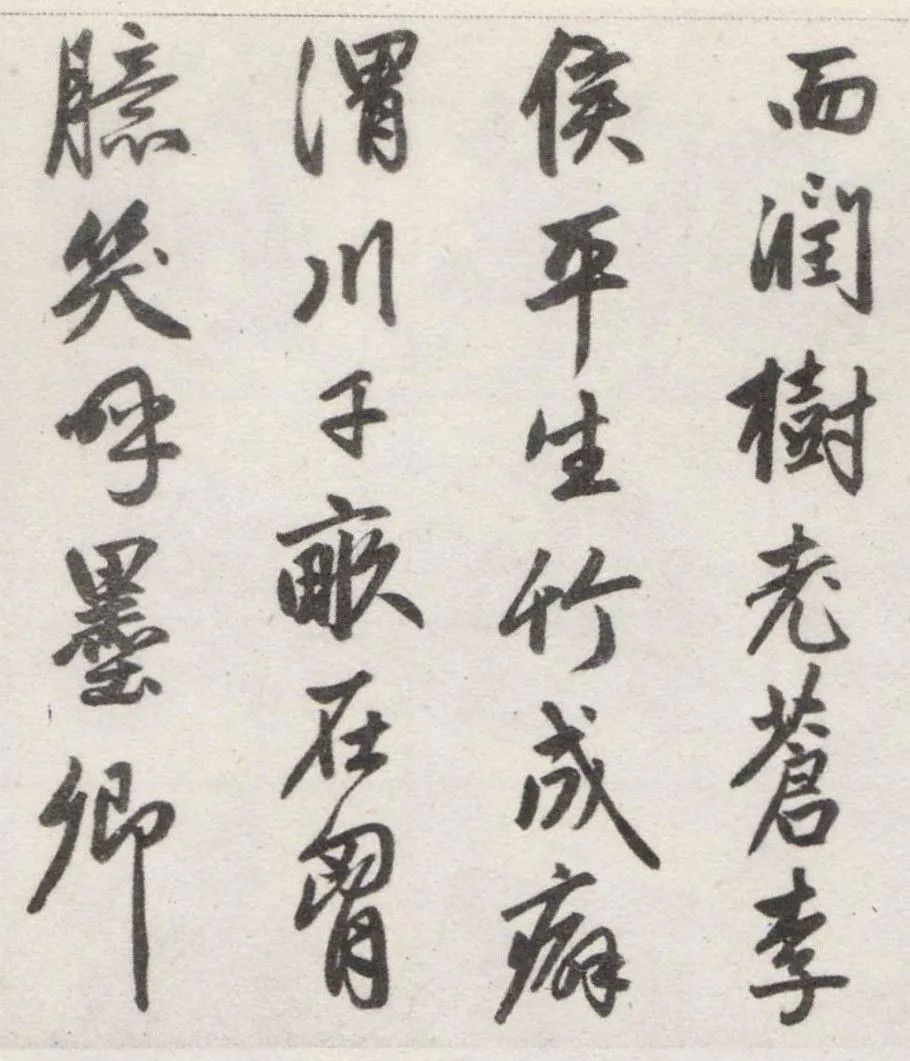 而潤樹老蒼李
侯平生竹成癖
渭川千畝在胷
臆笑呼墨卿